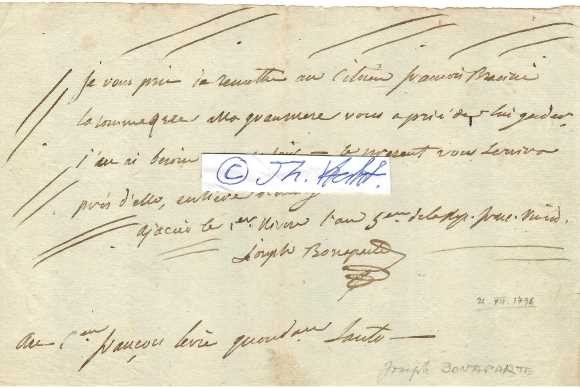 Je vous prie de remettre au Citoien françois
la somme que ma grandmere vous a prié de lui garder
j'en ai besoin le present vous servira
près d'elle, entiere
ajaccio le 1er Nivose l'an 5eme de la Rep. franc.
© Th. Kecht.
Joseph Bonaparte
21. XII. 1796
au Cen françois levie quondam Santo
Joseph BONAPARTE